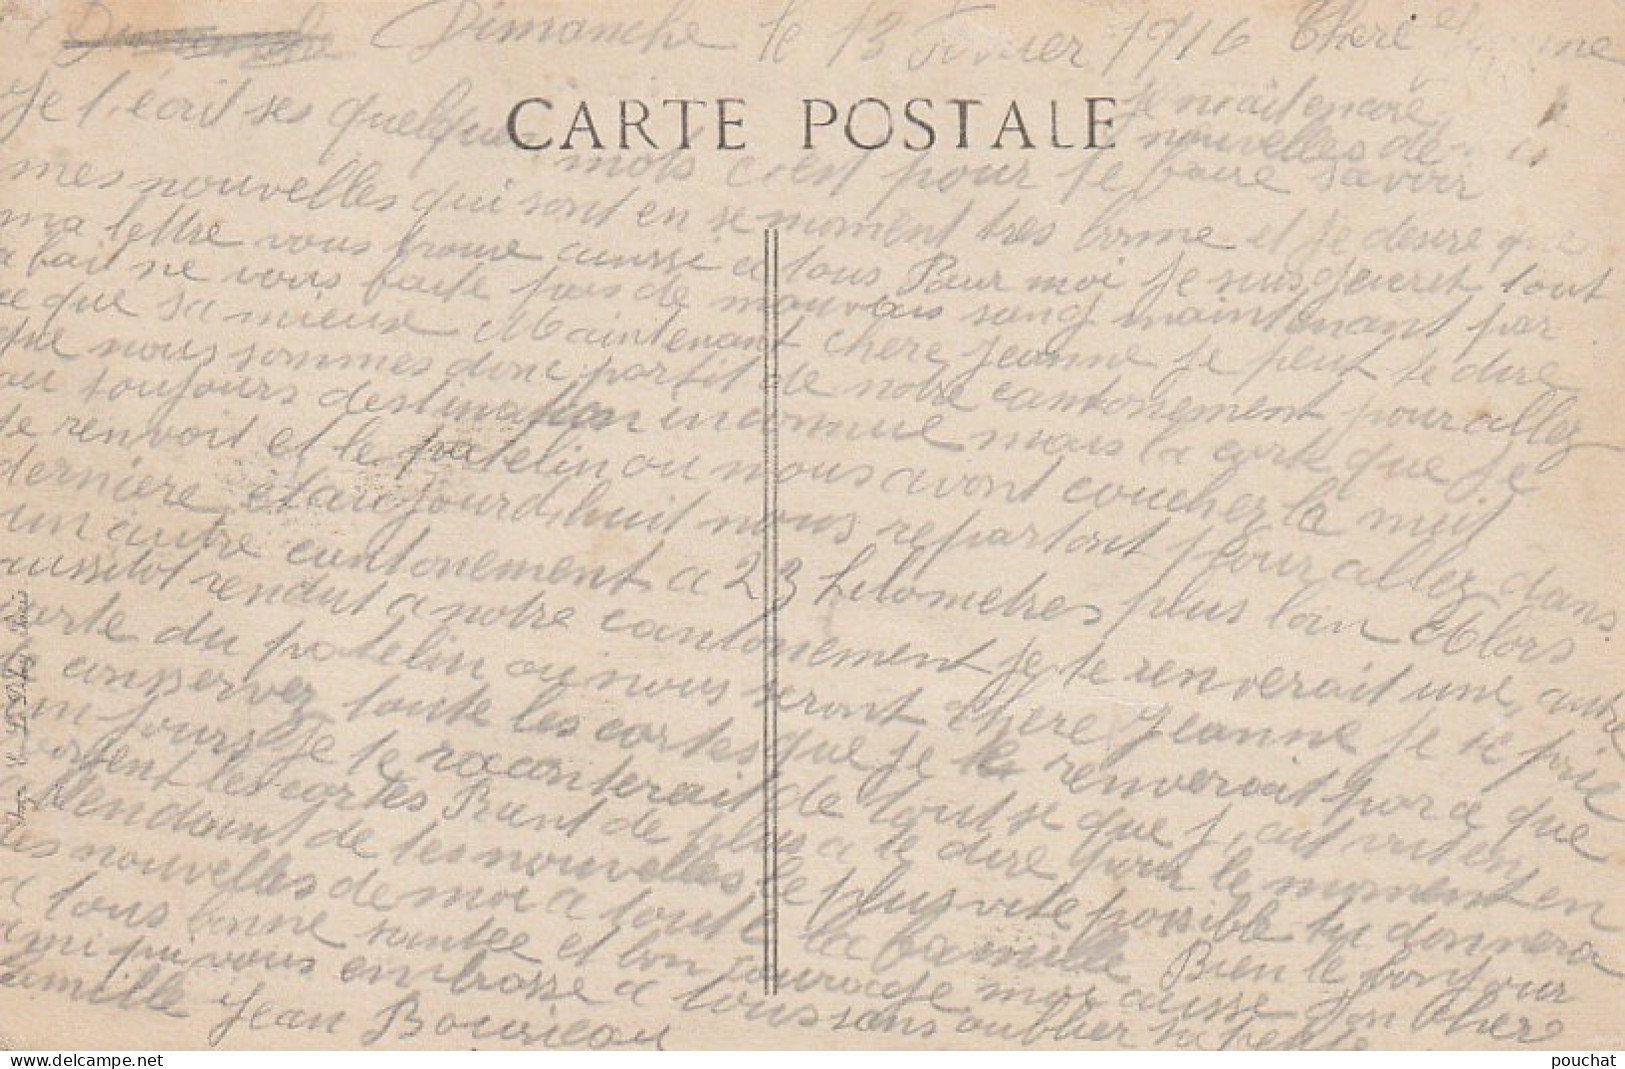 Dimanche le 13 Fevrier 1916 Cheré Jeanne
CARTE POSTALE
Je n'ait encore
nouvelles de
Je t'écrit ses quelques mots c'est pour te faire savoir
mes nouvelles qui sont en se moment tres bonne et je desire que
ma lettre vous trouve aussie a tous Pour moi je suis gueret tout
a fait ne vous faite pas de mauvais sang maintenant par
ce que sa mieux Maintenant chere Jeanne je peut te dire
que nous sommes donc partit de notre cantonement pour allez
au toujours destination inconnue mais la carte que je
te renvoit et le patelin ou nous avont coucher la nuit
derniere et aujourd'huit nous repartont pour allez dans
un autre cantonement a 23 kilometres plus loin Alors
aussitot rendut a notre cantonement je te renverait une autre
carte du patelin ou nous seront Chere Jeanne je te prie
de conservez toute les cartes que je te renverait par ce que
un jours je te raconterait de tout se que j'ait vut en
voyent les cartes Rient de plus a te dire pour le moment en
attendant de tes nouvelles le plus vite possible tu donnera
des nouvelles de moi a toute la famille Bien le bonjour
a tous bonne santée et bon courage moi aussie Ton cher
ami qui vous embrasse a tous sans oublier ta petite
famille Jean Bourieau
pouchat